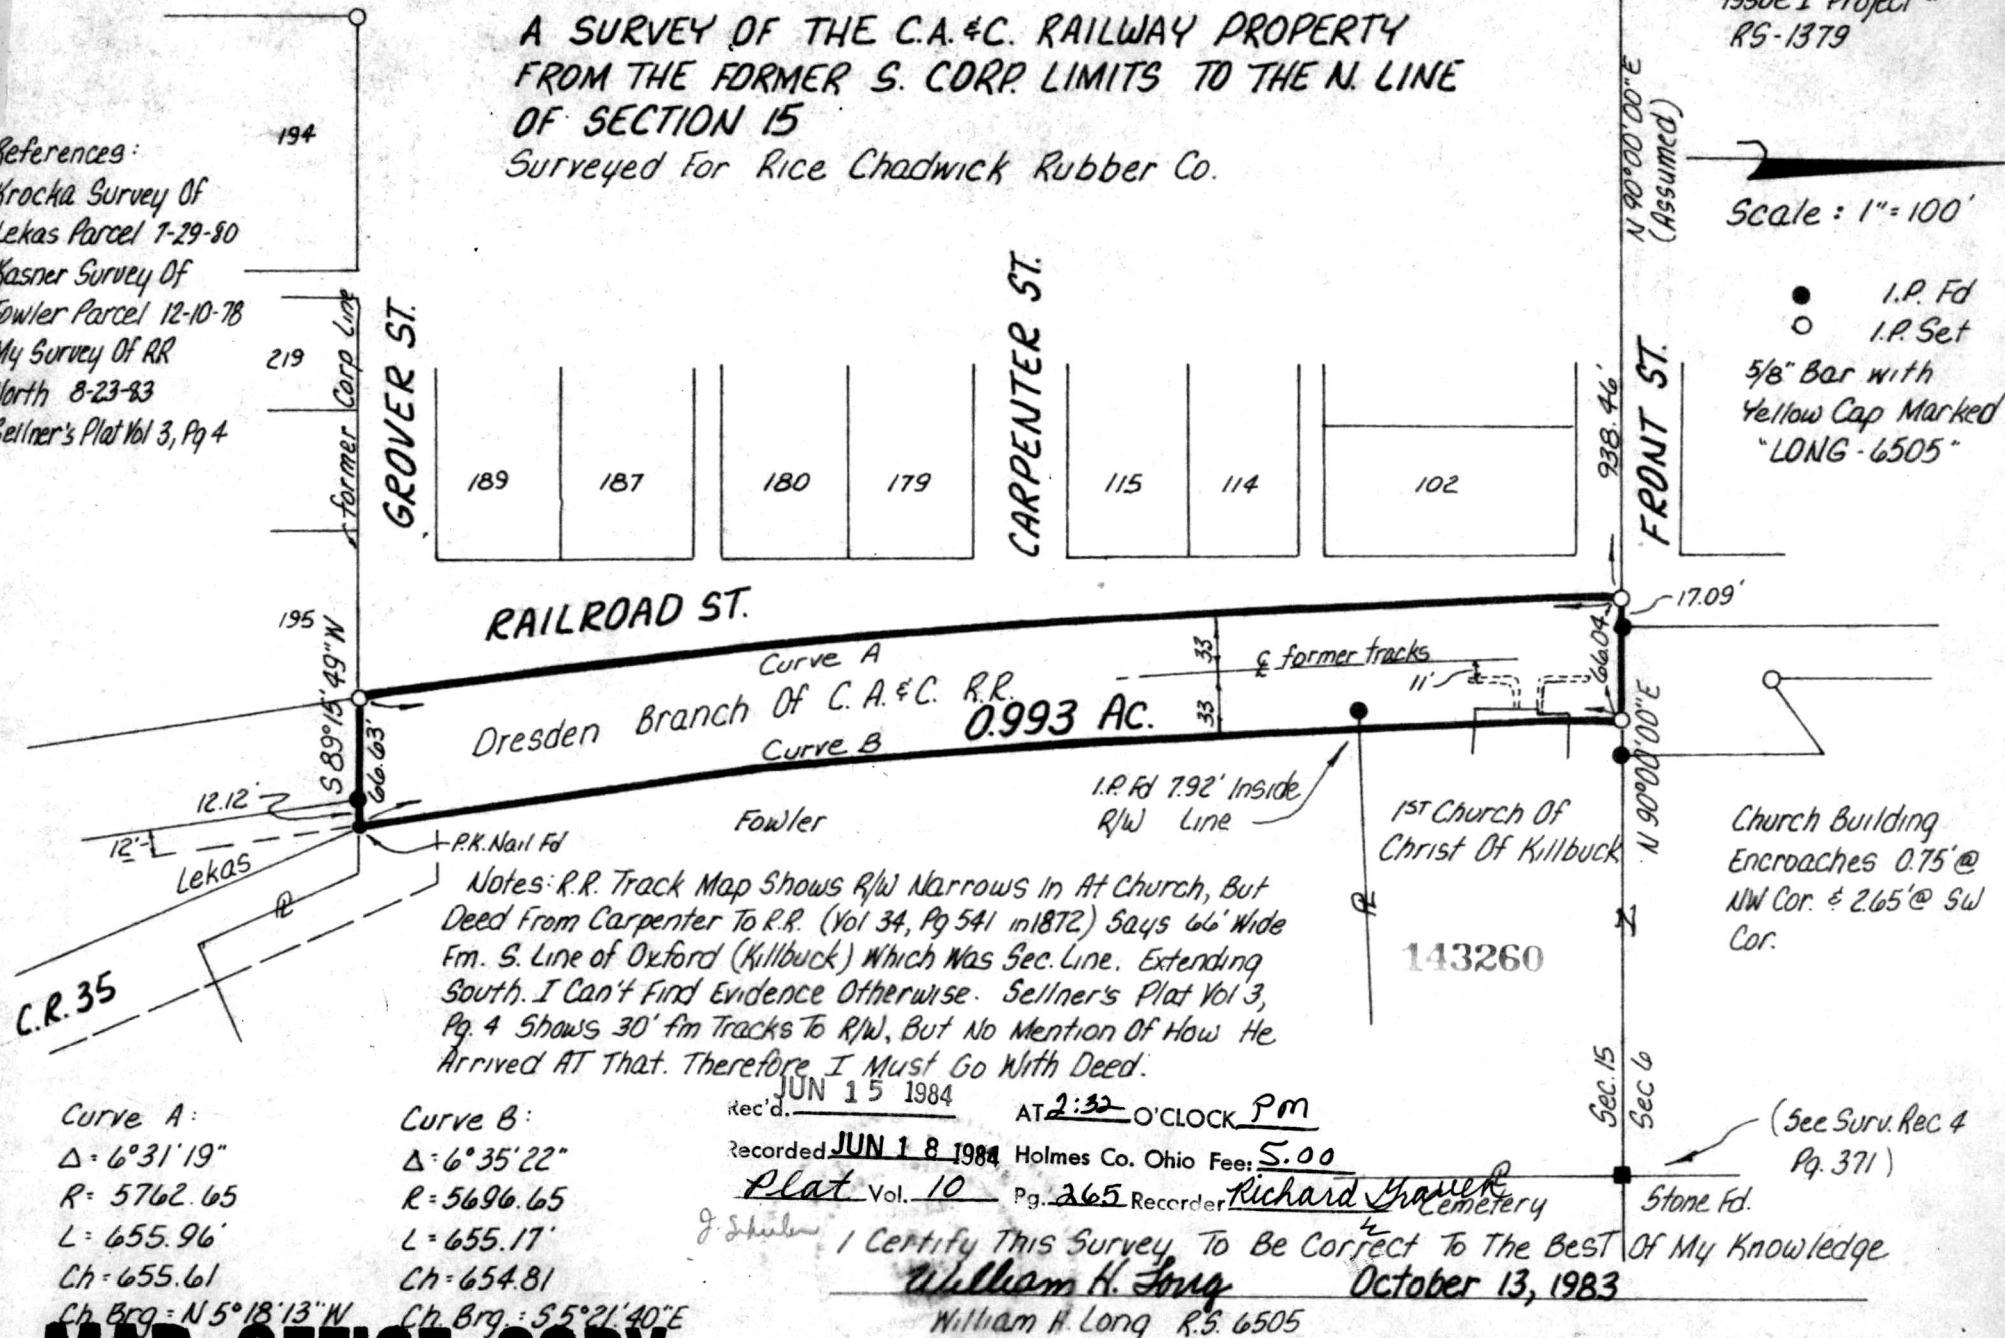 A SURVEY OF THE C.A.&C. RAILWAY PROPERTY
FROM THE FORMER S. CORP. LIMITS TO THE N. LINE
OF SECTION 15
Surveyed For Rice Chadwick Rubber Co.
Issue 1 Project
RS-1379
References:
Krocka Survey Of
Lekas Parcel 7-29-80
Kasner Survey Of
Fowler Parcel 12-10-78
My Survey Of RR
North 8-23-83
Sellner's Plat Vol 3, Pg 4
194
219
195
former Corp Line
GROVER ST.
CARPENTER ST.
FRONT ST.
N 90°00'00"E
(Assumed)
938.46'
Scale: 1"=100'
I.P. Fd
I.P. Set
5/8" Bar with
Yellow Cap Marked
"LONG-6505"
189
187
180
179
115
114
102
RAILROAD ST.
S 89°15'49"W
66.63'
Curve A
Dresden Branch Of C.A.&C. R.R.
0.993 AC.
Curve B
33
33
℄ former tracks
11'
66.04
17.09'
N 90°00'00"E
12.12'
12'
Lekas
P.K. Nail Fd
Fowler
I.P. Fd 7.92' Inside
R/W Line
1ST Church Of
Christ Of Killbuck
Church Building
Encroaches 0.75'@
NW Cor. & 2.65'@ SW
Cor.
C.R. 35
Notes: R.R. Track Map Shows R/W Narrows In At Church, But
Deed From Carpenter To R.R. (Vol 34, Pg 541 in 1872) Says 66' Wide
Fm. S. Line of Oxford (Killbuck) Which Was Sec. Line. Extending
South. I Can't Find Evidence Otherwise. Sellner's Plat Vol 3,
Pg. 4 Shows 30' fm Tracks To R/W, But No Mention Of How He
Arrived AT That. Therefore I Must Go With Deed.
143260
Sec. 15
Sec 6
(See Surv. Rec 4
Pg. 371)
Stone Fd.
Cemetery
Curve A:
Δ=6°31'19"
R= 5762.65
L= 655.96'
Ch=655.61
Ch Brg= N 5°18'13"W
Curve B:
Δ=6°35'22"
R=5696.65
L=655.17'
Ch=654.81
Ch. Brg.: S 5°21'40"E
Rec'd. JUN 15 1984 AT 2:32 O'CLOCK PM
Recorded JUN 18 1984 Holmes Co. Ohio Fee: 5.00
Plat Vol. 10 Pg. 265 Recorder Richard Graven
I Certify This Survey To Be Correct To The Best Of My Knowledge
William H. Long October 13, 1983
William H. Long R.S. 6505
MAP OFFICE COPY